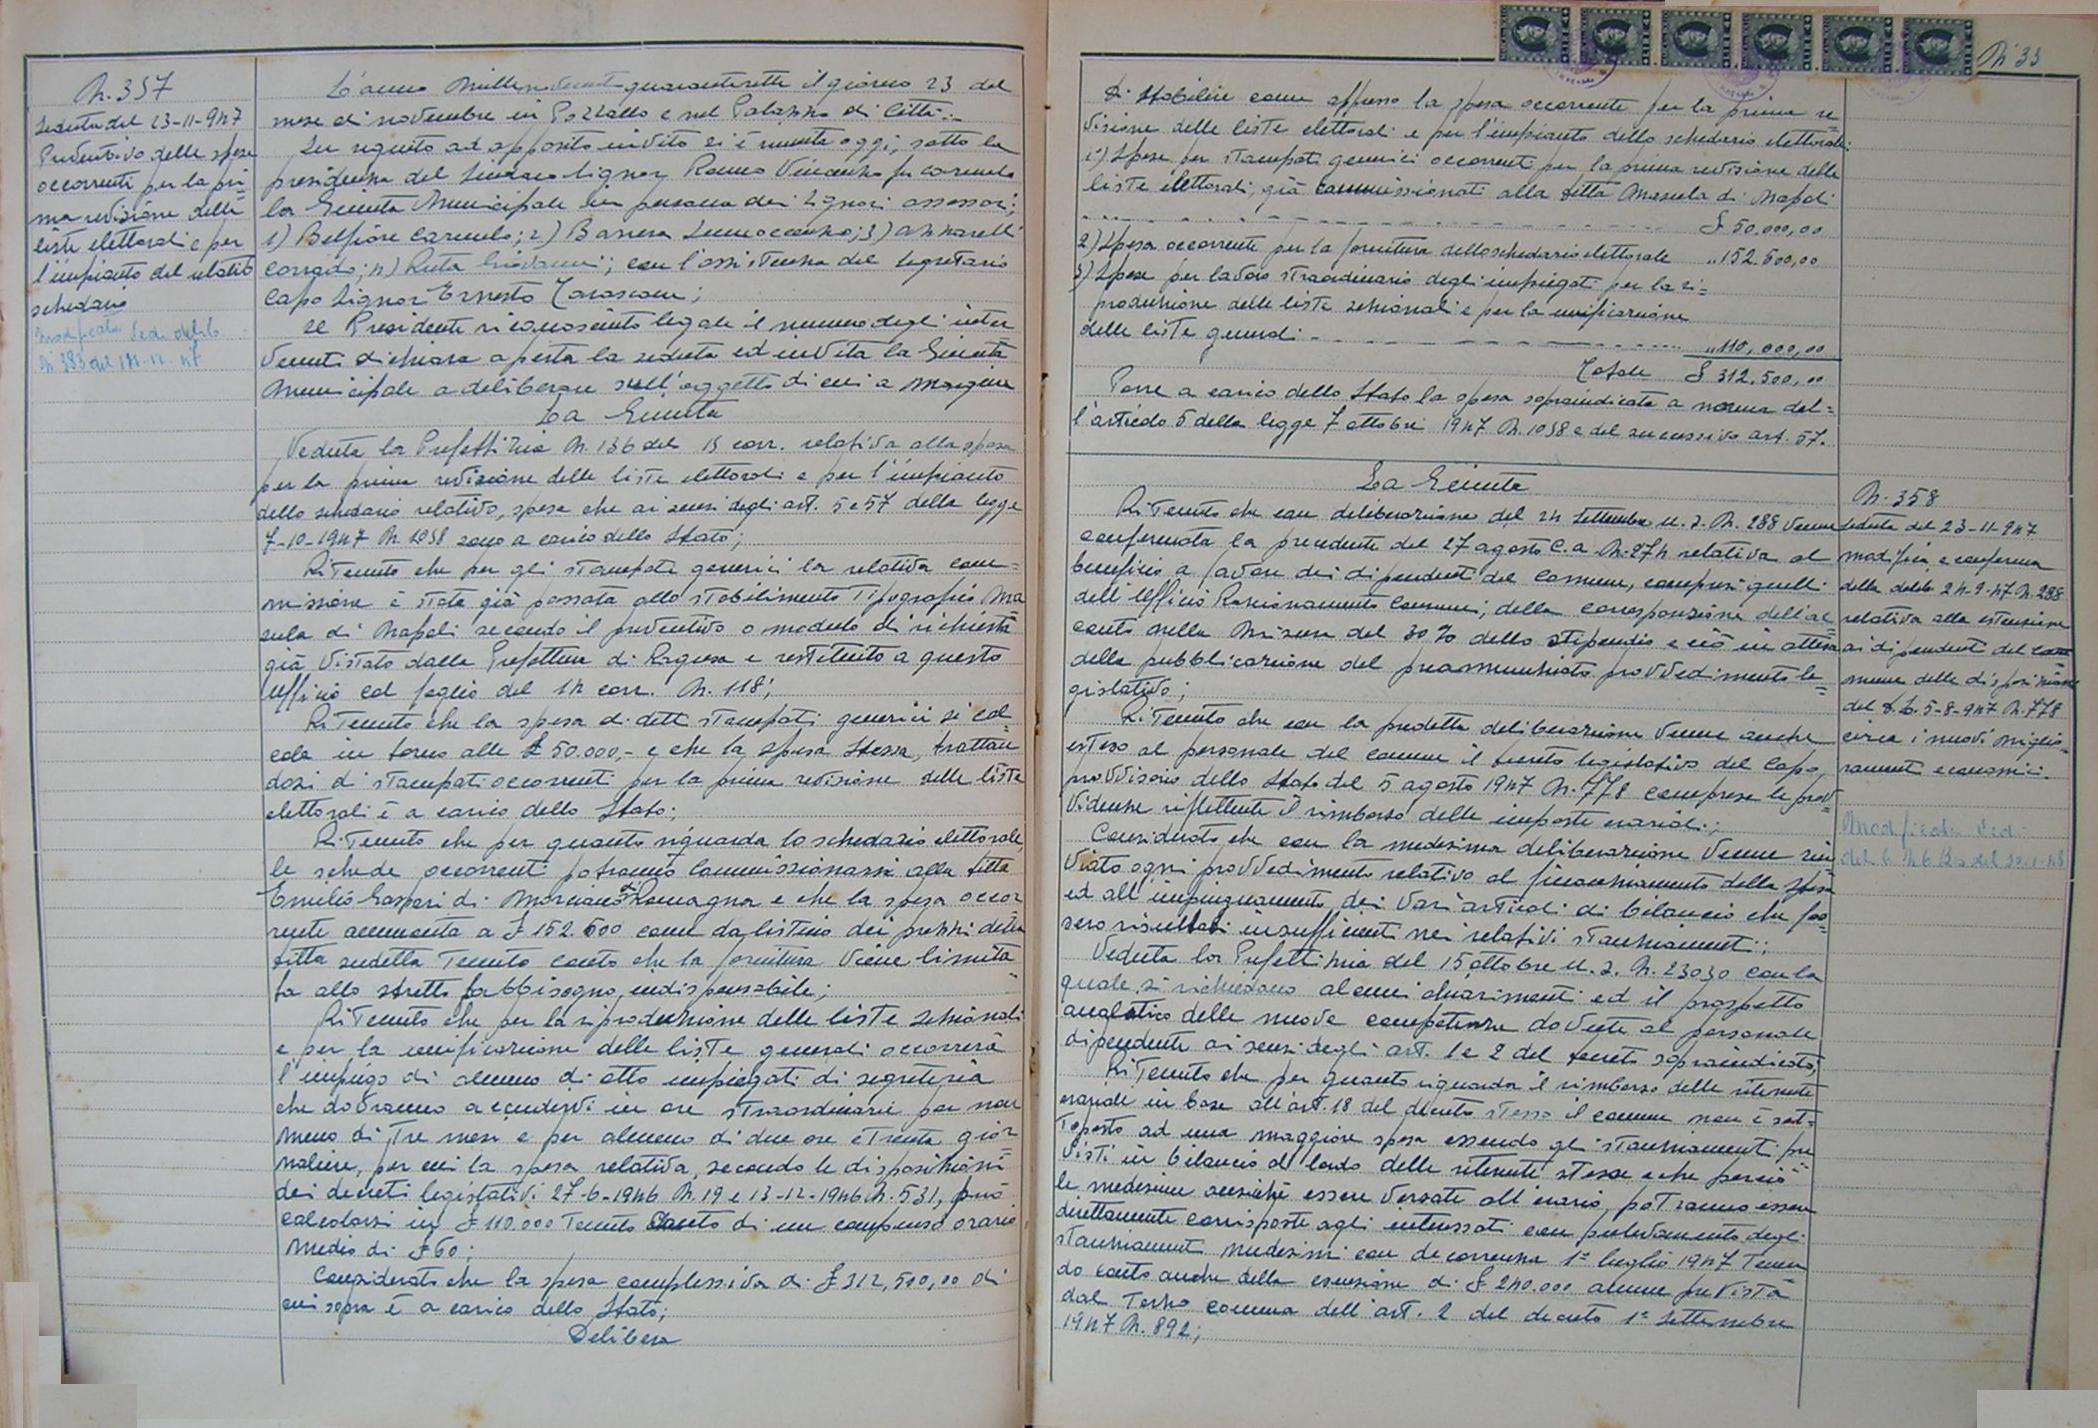 N. 357
Seduta del 23-11-947
Preventivo delle spese
occorrenti per la pri=
ma revisione delle
liste elettorali e per
l'impianto del relativo
schedario
Modificata Vedi delib.
N. 383 del
L'anno millenovecentoquarantasette il giorno 23 del
mese di novembre in Pozzallo e nel Palazzo di Città:-
In seguito ad apposito invito si è riunita oggi, sotto la
presidenza del Sindaco Signor Vincenzo fu Carmelo
la Giunta Municipale in persona dei Signori assessori;
1) Belfiore Carmelo; 2) Barrera Innocenzo; 3) Azzarelli
Corrado; 4) Ruta Giovanni; con l'assistenza del Segretario
Capo Signor Ernesto
Il Presidente riconosciuto legale il numero degli inter
venuti dichiara aperta la seduta ed invita la Giunta
Municipale a deliberare sull'oggetto di cui a margine
La Giunta
Veduta la Prefettizia N. 136 del 13 corr. relativa alla spesa
per la prima revisione delle liste elettorali e per l'impianto
dello schedario relativo, spesa che ai sensi degli art. 5 e 57 della legge
7-10-1947 N. 1058 sono a carico dello Stato;
Ritenuto che per gli stampati generici la relativa com=
missione è stata già passata allo stabilimento Tipografico Ma
sula di Napoli secondo il preventivo o modulo di richiesta
già vistato dalla Prefettura di Ragusa e restituito a questo
Ufficio col foglio del 14 corr. N. 118;
Ritenuto che la spesa di detti stampati generici si cal=
cola in torno alle £ 50.000,- e che la spesa stessa, trattan
dosi di stampati occorrenti per la prima revisione delle liste
elettorali è a carico dello Stato;
Ritenuto che per quanto riguarda lo schedario elettorale,
le schede occorrenti potranno commissionarsi alla ditta
Emilio Gasperi di Morciano di Romagna e che la spesa occor
rente ammonta a £ 152.500 come da listino dei prezzi della
ditta sudetta tenuto conto che la fornitura viene limita
ta allo stretto fabbisogno indispensabile;
Ritenuto che per la riproduzione delle liste sezionali
e per la unificazione delle liste generali occorrerà
l'impiego di almeno di otto impiegati di segreteria
che dovranno accudirvi in ore straordinarie per non
meno di tre mesi e per almeno di due ore e trenta gior=
naliere, per cui la spesa relativa, secondo le disposizioni
dei decreti legislativi 27-6-1946 N. 19 e 13-12-1946 N. 531, può
calcolarsi in £ 110.000 tenuto conto di un compenso orario
medio di £ 60;
Considerato che la spesa complessiva di £ 312,500,00 di
cui sopra è a carico dello Stato;
Delibera
N 33
Di stabilire come appresso la spesa occorrente per la prima re=
visione delle liste elettorali e per l'impianto dello schedario elettorale:
1°) Spesa per stampati generici occorrenti per la prima revisione delle
liste elettorali, già commissionati alla ditta Masula di Napoli
£ 50.000,00
2) Spesa occorrente per la fornitura dello schedario elettorale " 152.500,00
3) Spesa per lavoro straordinario degli impiegati per la ri=
produzione delle liste sezionali e per la unificazione
delle liste generali " 110,000,00
Totale £ 312.500,00
Porre a carico dello Stato la spesa sopraindicata a norma del=
l'articolo 5 della legge 7 ottobre 1947 N. 1058 e del successivo art. 57.
La Giunta
Ritenuto che con deliberazione del 24 settembre u.s. N. 288 venne
confermata la precedente del 27 agosto c.a. N. 274 relativa al
beneficio a favore dei dipendenti del Comune, compresi quelli
dell'Ufficio Razionamento Consumi, della corresponsione dell'ac=
conto nella misura del 30% dello stipendio e ciò in attesa
della pubblicazione del preannunciato provvedimento le=
gislativo;
Ritenuto che con la predetta deliberazione venne anche
esteso al personale del comune il decreto legislativo del Capo
provvisorio dello Stato del 5 agosto 1947 N. 778 comprese le prov=
videnze riflettente il rimborso delle imposte erariali;
Considerato che con la medesima deliberazione venne rin
viato ogni provvedimento relativo al finanziamento della spesa
ed all'impinguamento dei vari articoli di bilancio che fos=
sero risultati insufficienti nei relativi stanziamenti;
Veduta la Prefettizia del 15 ottobre u.s. N. 23030 con la
quale si richiedono alcuni chiarimenti ed il prospetto
analitico delle nuove competenze dovute al personale
dipendente ai sensi degli art. 1 e 2 del decreto sopraindicato;
Ritenuto che per quanto riguarda il rimborso delle ritenute
erariali in base all'art. 18 del decreto stesso il comune non è sot=
toposto ad una maggiore spesa essendo gli stanziamenti pre
visti in bilancio al lordo delle ritenute stesse e che perciò
le medesime anzichè essere versate all'erario, potranno essere
direttamente corrisposte agli interessati con prelevamento degli
stanziamenti medesimi con decorrenza 1° luglio 1947 tenen
do conto anche della esenzione di £ 240.000 annue prevista
dal terzo comma dell'art. 2 del decreto 1° Settembre
1947 N. 892;
N. 358
Seduta del 23-11-947
modifica e conferma
della delib. 24-9-47 N. 288
relativa alla estensione
ai dipendenti del Co=
mune delle disposizioni
del D.L. 5-8-947 N. 778
circa i nuovi miglio=
ramenti economici.
Modificata Vedi